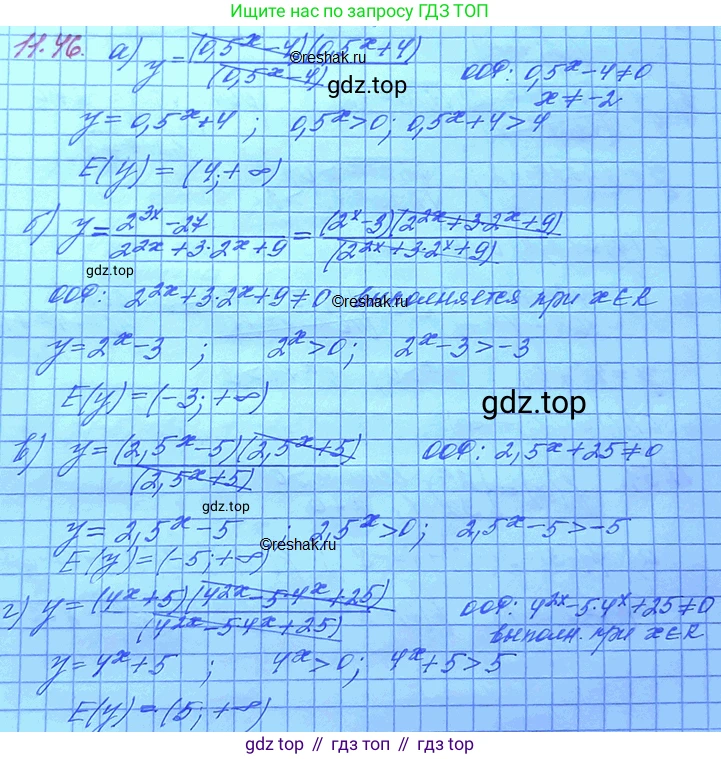 Ищите нас по запросу ГДЗ ТОП
11.46. а) y = (0,5^x – 4)(0,5^x + 4) / (0,5^x – 4) ООФ: 0,5^x – 4 ≠ 0
©reshak.ru
gdz.top
x ≠ –2
y = 0,5^x + 4 ; 0,5^x > 0; 0,5^x + 4 > 4
E(y) = (4; +∞)
б) y = 2^{3x} – 27 / 2^{2x} + 3·2^x + 9 = (2^x – 3)(2^{2x} + 3·2^x + 9) / (2^{2x} + 3·2^x + 9)
gdz.top
ООФ: 2^{2x} + 3·2^x + 9 ≠ 0 выполняется при x ∈ R
©reshak.ru
y = 2^x – 3 ; 2^x > 0; 2^x – 3 > –3
E(y) = (–3; +∞)
gdz.top
в) y = (2,5^x – 5)(2,5^x + 5) / (2,5^x + 5) ООФ: 2,5^x + 25 ≠ 0
gdz.top
y = 2,5^x – 5 ; 2,5^x > 0; 2,5^x – 5 > –5
©reshak.ru
E(y) = (–5; +∞)
г) y = (4^x + 5)(4^{2x} – 5·4^x + 25) / (4^{2x} – 5·4^x + 25) ООФ: 4^{2x} – 5·4^x + 25 ≠ 0
выполн. при x ∈ R
y = 4^x + 5 ; 4^x > 0; 4^x + 5 > 5
E(y) = (5; +∞)
gdz top // гдз топ // gdz.top // гдз.топ